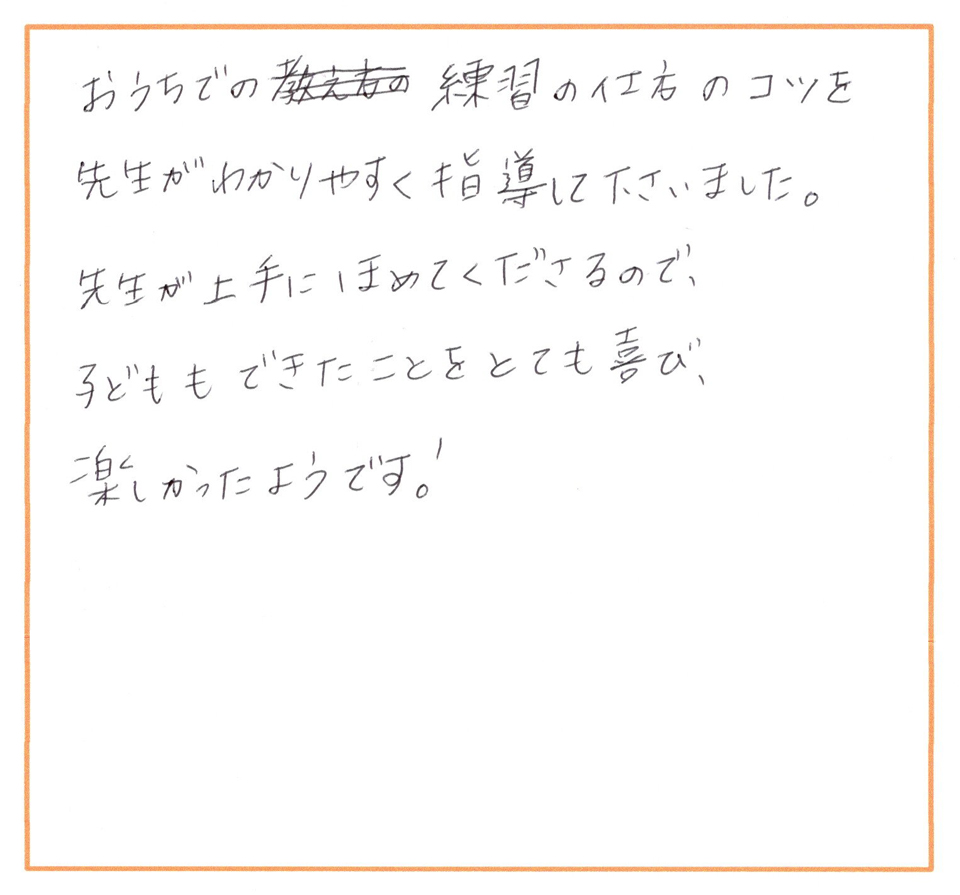 おうちでの教え方の練習の仕方のコツを
先生がわかりやすく指導して下さいました。
先生が上手にほめてくださるので、
子どももできたことをとても喜び、
楽しかったようです。